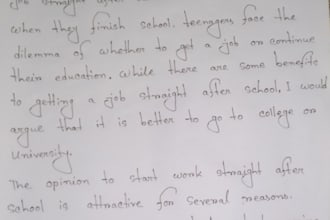 job straight after
when they finish school, teenagers face the
dilemma of whether to get a job or continue
their education. While there are some benefits
to getting a job straight after school, I would
argue that it is better to go to college or
University.
The opinion to start work straight after
school is attractive for several reasons.